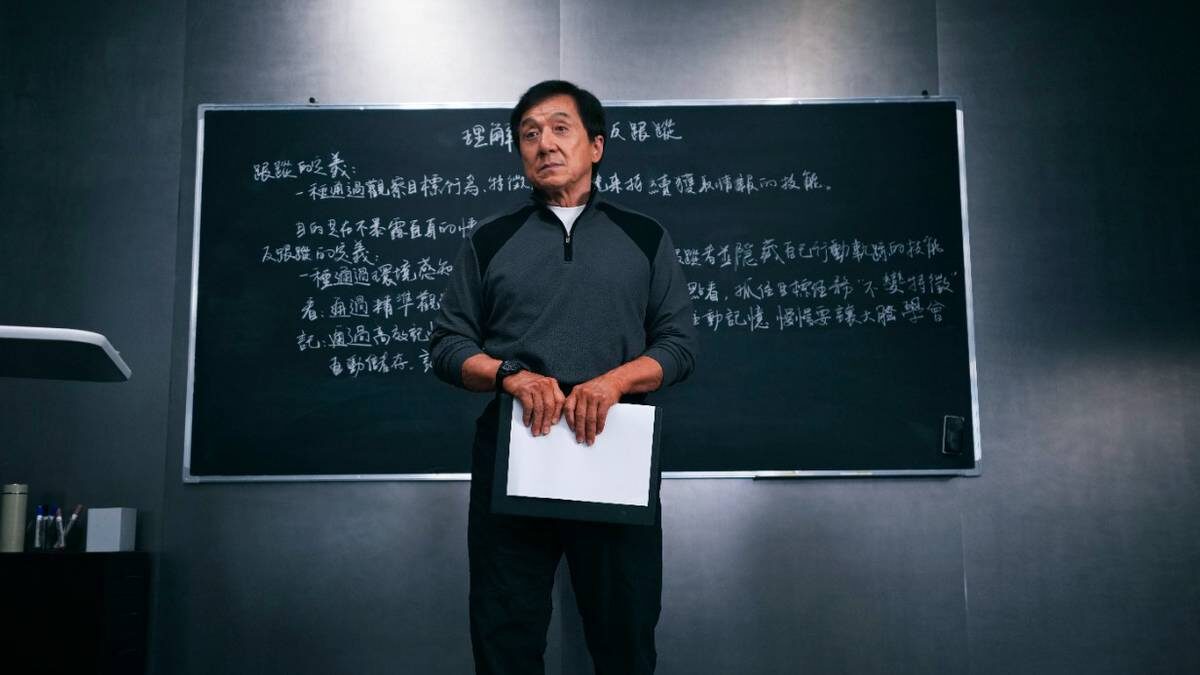 理解 反跟蹤
跟蹤的定義：
一種通過觀察目標行為、特徵 來持續獲取情報的技能。
目的是在不暴露自真的情
反跟蹤的定義： 蹤者並隱藏自己行動軌跡的技能
一種通過環境感知
看：通過精準觀 點看，抓住目標任務“不變特徵”
記：通過高效記 主動記憶 慢慢要讓大腦學會
自動儲存、